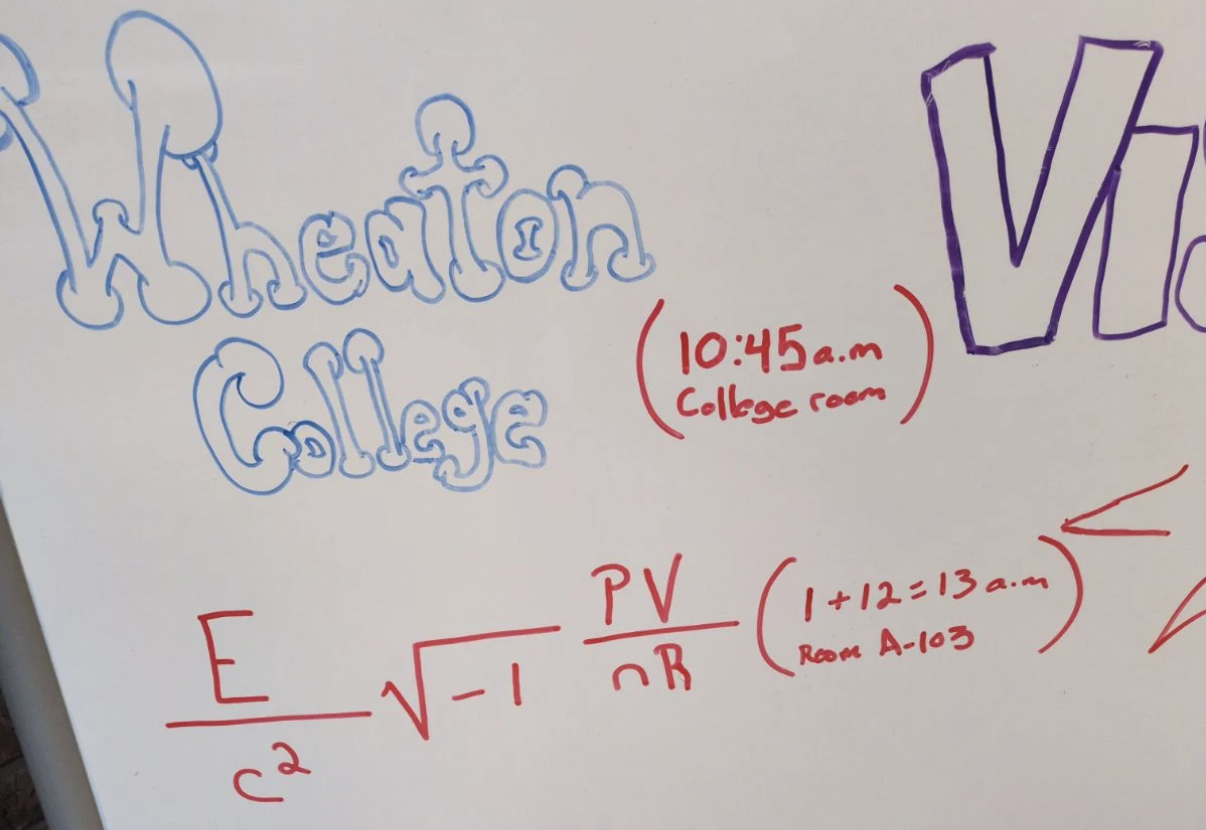 Wheaton
College
(10:45 a.m
College room)
E/c² √-1 PV/nR (1+12=13 a.m
Room A-103)